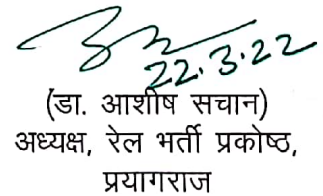 22.3.22
(डा. आशीष सचान)
अध्यक्ष, रेल भर्ती प्रकोष्ठ,
प्रयागराज